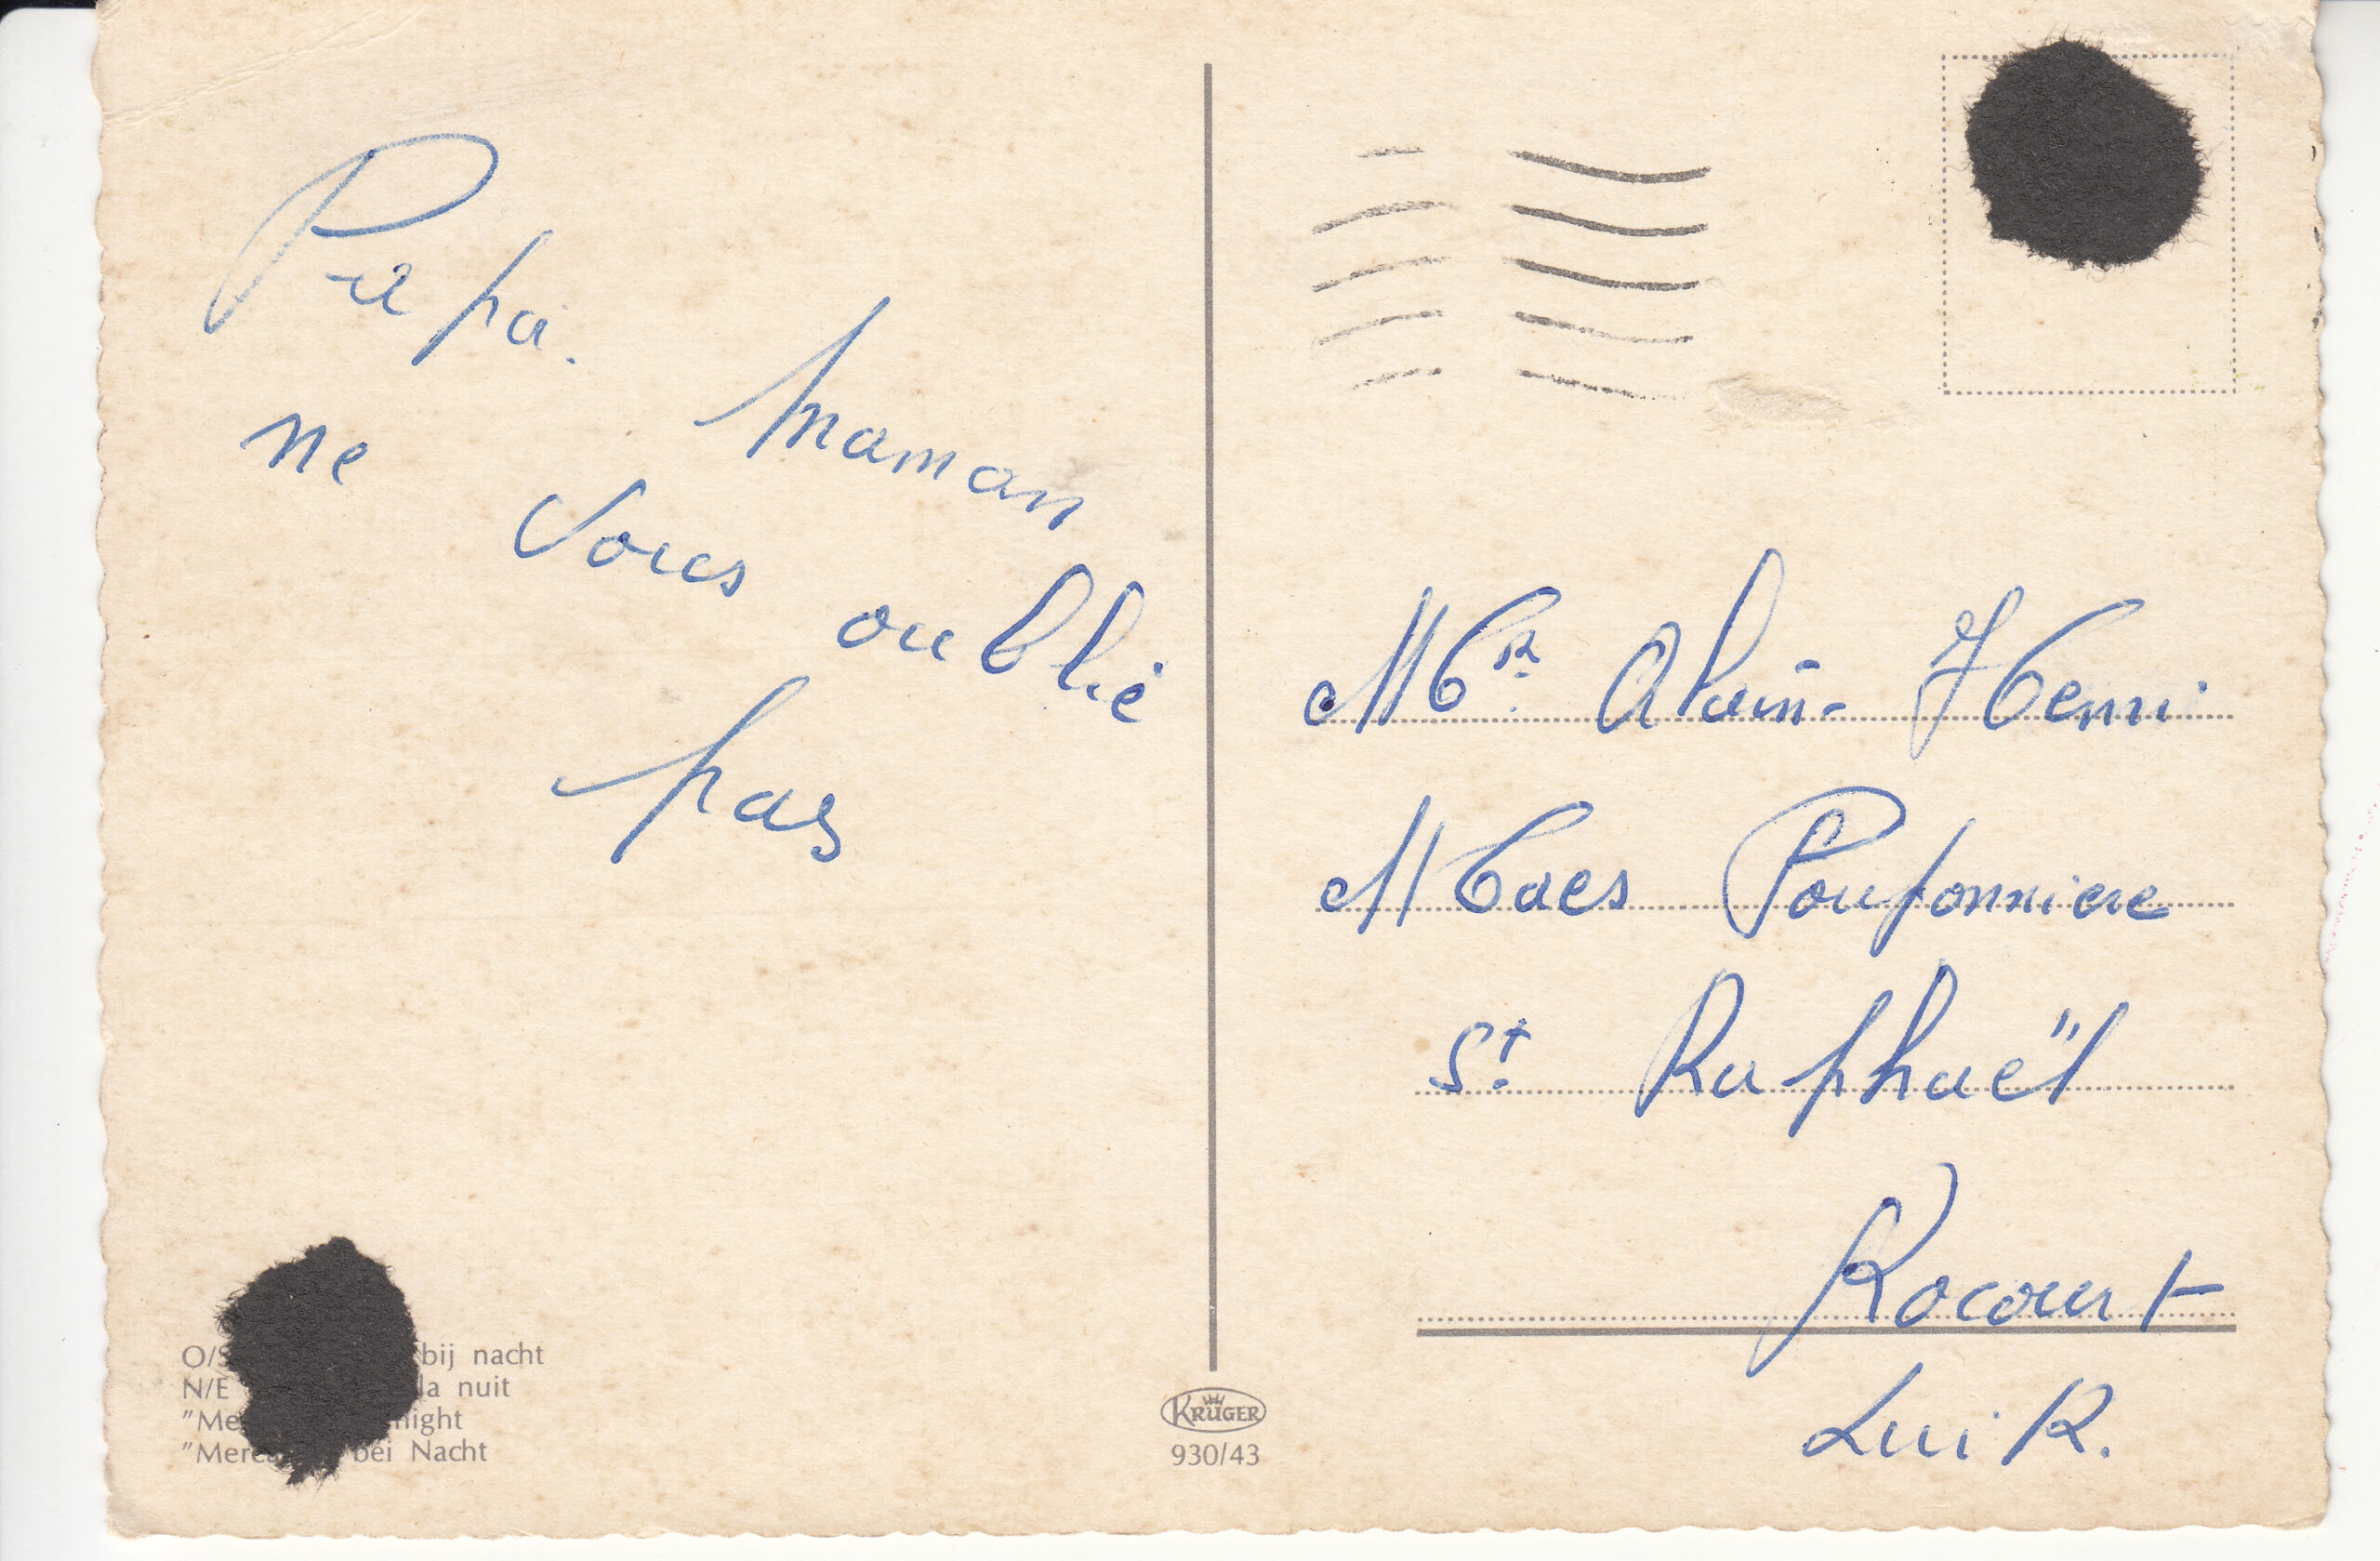 Papa. maman
ne vous oublie
pas
O/S bij nacht
N/E la nuit
"Me night
"Mere bei Nacht
KRÜGER
930/43
Mr. Alain- Henri
Maes Pouponniere
St. Raphaël
Rocourt
Luik.